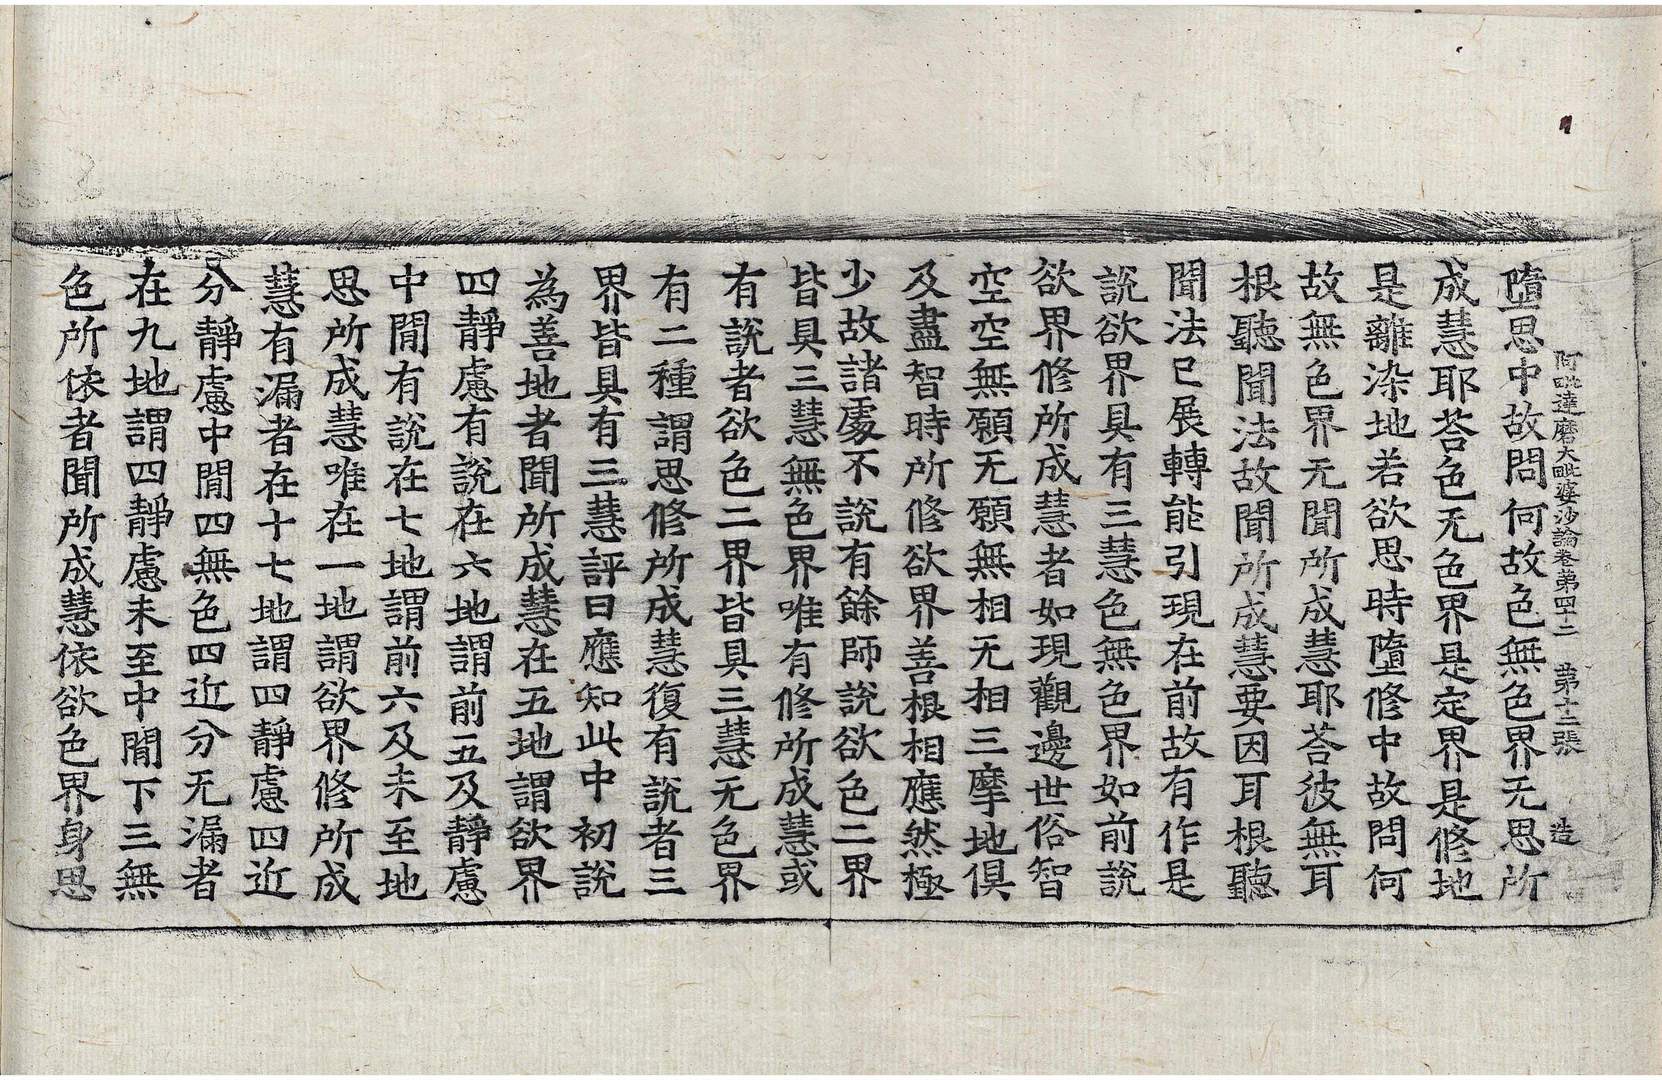 阿毗達磨大毗婆沙論卷第四十二　第十二張　造
墮思中故問何故色無色界无思所
成慧耶荅色无色界是定界是修地
是離染地若欲思時墮修中故問何
故無色界无聞所成慧耶荅彼無耳
根聽聞法故聞所成慧要因耳根聽
聞法已展轉能引現在前故有作是
說欲界具有三慧色無色界如前說
欲界修所成慧者如現觀邊世俗智
空空無願无願無相无相三摩地俱
及盡智時所修欲界善根相應然極
少故諸處不說有餘師說欲色二界
皆具三慧無色界唯有修所成慧或
有說者欲色二界皆具三慧无色界
有二種謂思修所成慧復有說者三
界皆具有三慧評曰應知此中初說
為善地者聞所成慧在五地謂欲界
四靜慮有說在六地謂前五及靜慮
中閒有說在七地謂前六及未至地
思所成慧唯在一地謂欲界修所成
慧有漏者在十七地謂四靜慮四近
分靜慮中閒四無色四近分无漏者
在九地謂四靜慮未至中閒下三無
色所依者聞所成慧依欲色界身思